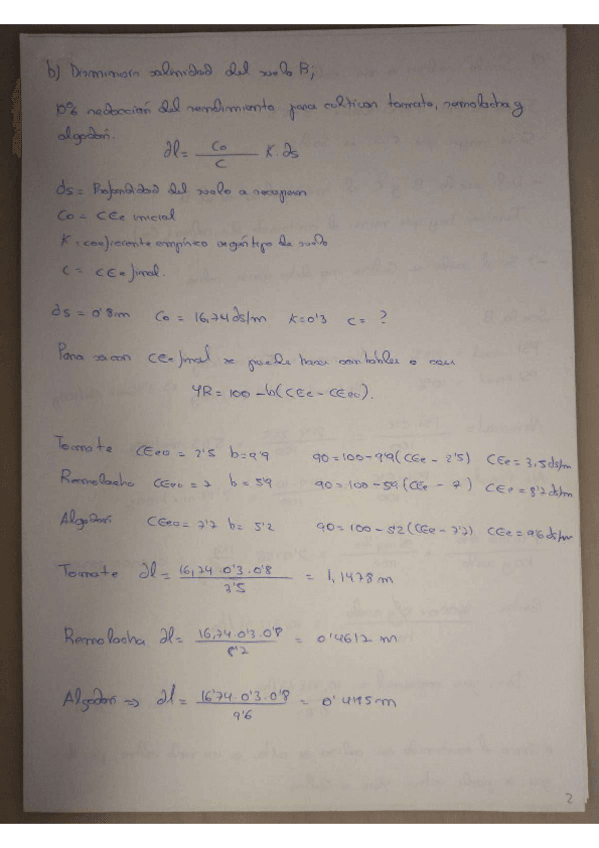 b) Disminución salinidad del suelo B;
10% reducción del rendimiento para cultivar tomate, remolacha y
algodón.
dl = Co / C K · ds
ds = Profundidad del suelo a recuperar
Co = CEe inicial
K = coeficiente empírico según tipo de suelo
C = CEe final.
ds = 0'8m Co = 16,74 ds/m K=0'3 C = ?
Para sacar CEe final se puede hacer con tablas o con
YR = 100 - b(CEe - CEeo).
Tomate CEeo = 2'5 b=9'9 90 = 100-9'9(CEe - 2'5) CEe = 3.5ds/m
Remolacha CEeo = 7 b = 5'9 90 = 100-5'9(CEe - 7) CEe = 8'7ds/m
Algodón CEeo = 7'7 b= 5'2 90 = 100-5'2(CEe-7'7) CEe = 9'6ds/m
Tomate dl = 16,74·0'3·0'8 / 3'5 = 1,1478 m
Remolacha dl = 16,74·0'3·0'8 / 8'7 = 0'4612 m
Algodón ⇒ dl = 16'74·0'3·0'8 / 9'6 = m
2